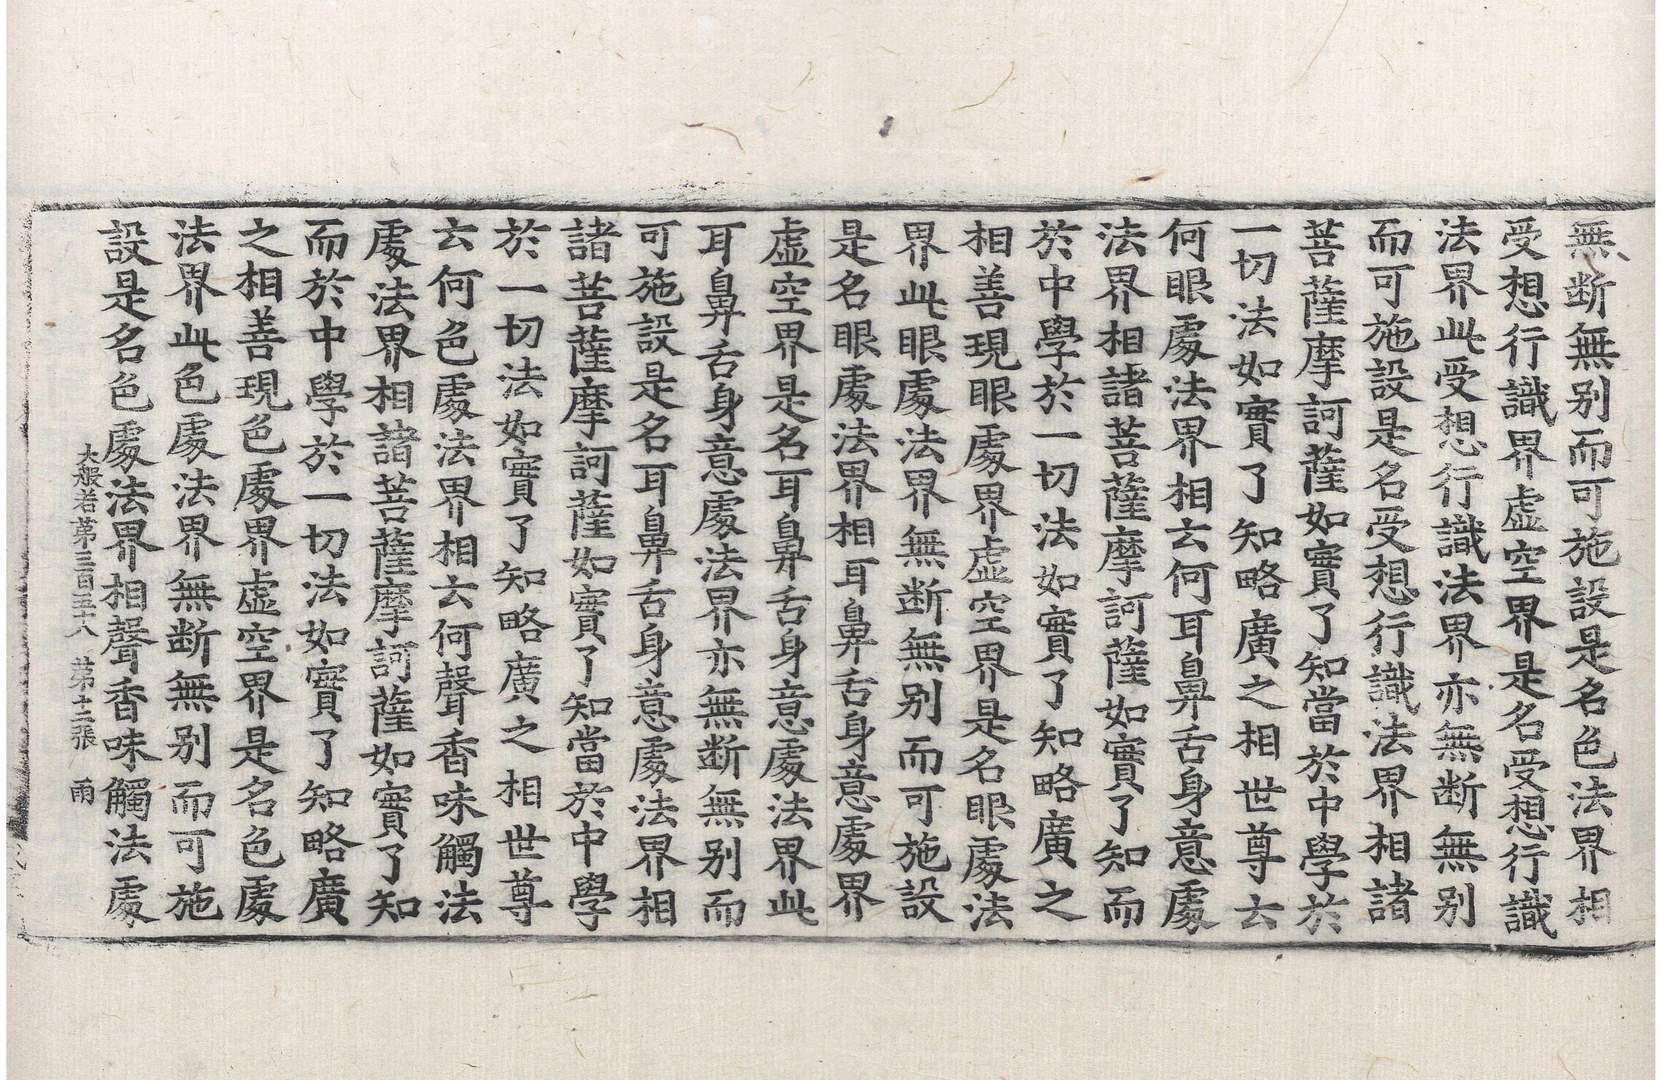 無斷無别而可施設是名色法界相
受想行識界虛空界是名受想行識
法界此受想行識法界亦無斷無别
而可施設是名受想行識法界相諸
菩薩摩訶薩如實了知當於中學於
一切法如實了知略廣之相世尊云
何眼處法界相云何耳鼻舌身意處
法界相諸菩薩摩訶薩如實了知而
於中學於一切法如實了知略廣之
相善現眼處界虛空界是名眼處法
界此眼處法界無斷無别而可施設
是名眼處法界相耳鼻舌身意處界
虛空界是名耳鼻舌身意處法界此
耳鼻舌身意處法界亦無斷無别而
可施設是名耳鼻舌身意處法界相
諸菩薩摩訶薩如實了知當於中學
於一切法如實了知略廣之相世尊
云何色處法界相云何聲香味觸法
處法界相諸菩薩摩訶薩如實了知
而於中學於一切法如實了知略廣
之相善現色處界虛空界是名色處
法界此色處法界無斷無别而可施
設是名色處法界相聲香味觸法處
大般若第三百五十八 第十二張 雨